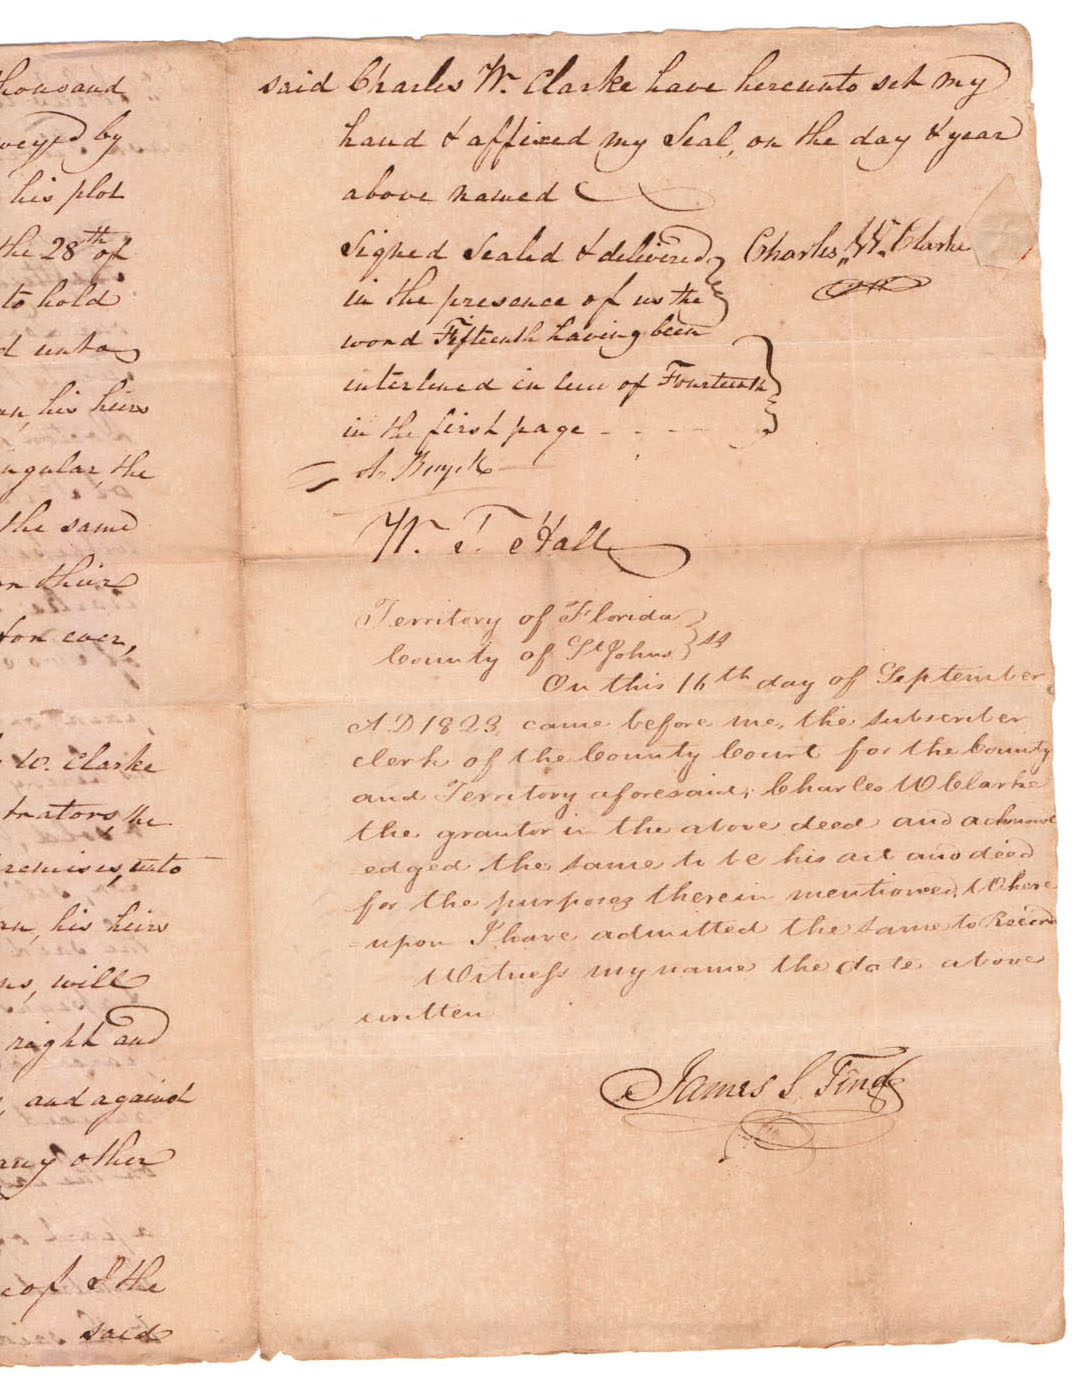 thousand
veyed by
his plot
the 28th of
to hold
d unto
an, his heirs
ngular, the
the same
on their
for ever,
W. Clarke
trators, the
remises, unto
an, his heirs
ns, will
right and
, and against
any other
eof I the
said
said Charles W. Clarke have hereunto set my
hand & affixed my Seal, on the day & year
above named
Signed Sealed & delivered
in the presence of us the
word Fifteenth having been
interlined in lieu of Fourteenth
in the first page - - - -
Charles W. Clarke
W. T. Hall
Territory of Florida
County of St Johns } ss
On this 16th day of September
A D 1823, came before me, the subscriber
clerk of the County Court for the County
and Territory aforesaid, Charles W Clarke
the grantor in the above deed and acknowl
edged the same to be his act and deed
for the purposes therein mentioned, Where
=upon I have admitted the same to Record
Witness my name the date above
written
James S Ting